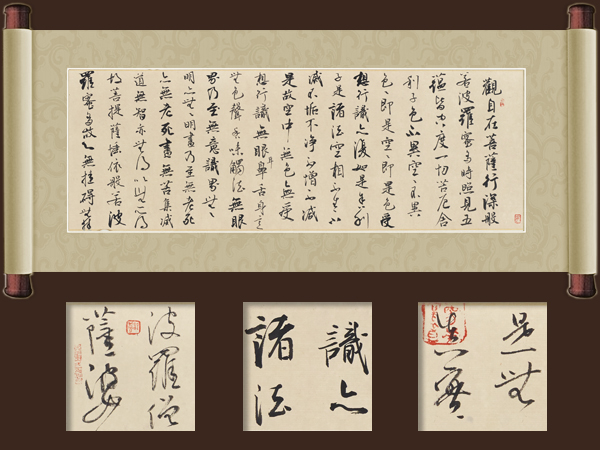 觀自在菩薩行深般
若波羅蜜多時照見五
蘊皆空度一切苦厄舍
利子色不異空〻不異
色〻即是空〻即是色受
想行識亦復如是舍利
子是諸法空相不生不
滅不垢不淨不增不減
是故空中無色無受
想行識無眼耳鼻舌身意
無色聲香味觸法無眼
界乃至無意識界無〻
明亦無〻明盡乃至無老死
亦無老死盡無苦集滅
道無智亦無得以無所得
故菩提薩埵依般若波
羅蜜多故心無罣礙無罣
波羅僧
薩婆
識亦
諸法
是無